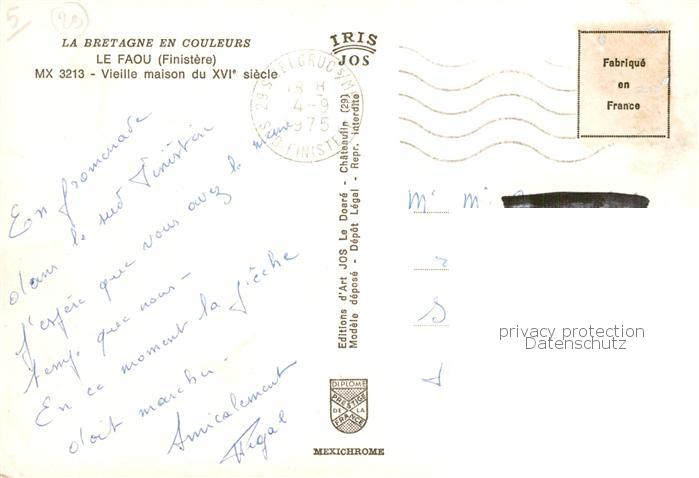 5
29
LA BRETAGNE EN COULEURS
LE FAOU (Finistère)
MX 3213 - Vieille maison du XVIe siècle
IRIS
JOS
29 S TELGRUC S/MER
18 H
4-9
1975
FINISTERE
Fabriqué
en
France
En promenade
dans le sud Finistère
J'espère que vous avez le même
temps que nous -
En ce moment la pêche
doit marcher.
Amicalement
Editions d'Art JOS Le Doaré - Châteaulin (29)
Modèle déposé - Dépôt Légal - Repr. interdite
DIPLOME
PRESTIGE
DE LA
FRANCE
MEXICHROME
Mr Me
privacy protection
Datenschutz